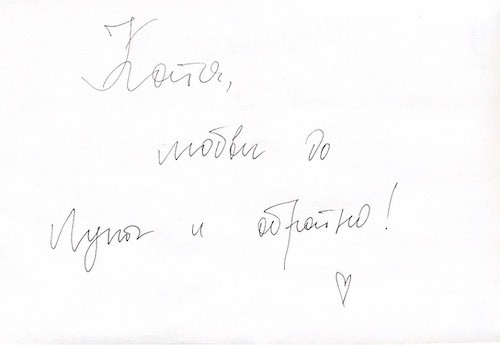 Катя,
любви до
Луны и обратно!